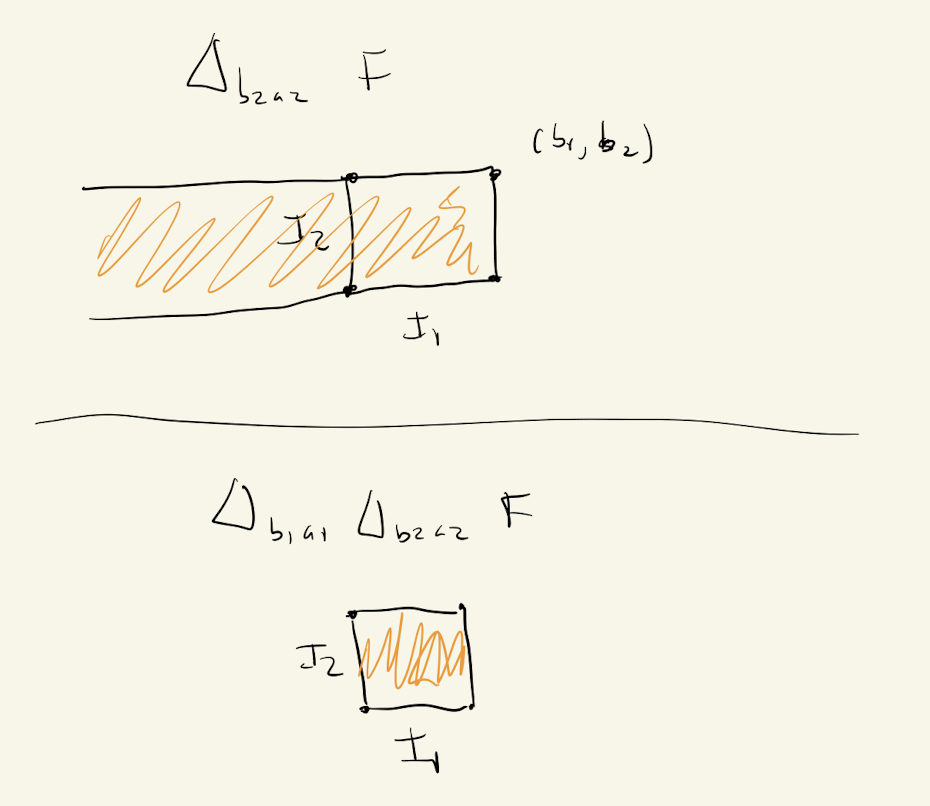 Δ_{b₂a₂} F
(b₁, b₂)
I₂
I₁
Δ_{b₁a₁} Δ_{b₂a₂} F
I₂
I₁